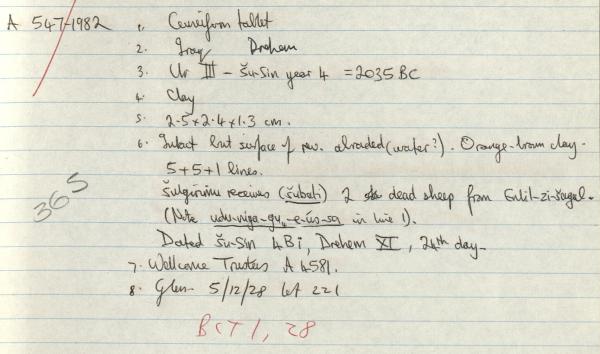 A 547-1982 1. Cuneiform tablet
2. Iraq Drehem
3. Ur III - Šu-Sin year 4 = 2035 BC
4. Clay
5. 2.5 x 2.4 x 1.3 cm.
6. Intact but surface of rev. abraded (water?). Orange-brown clay.
5+5+1 lines.
Šulgirimu receives (šubati) 2 dead sheep from Enlil-zi-šagal.
(Note udu-niga-gu₄-e-ús-sa in line 1).
Dated Šu-Sin 4Bi, Drehem XI, 24th day.
7. Wellcome Trustees A 4581.
8. Glen. 5/12/28 lot 221
365
BCT 1, 28